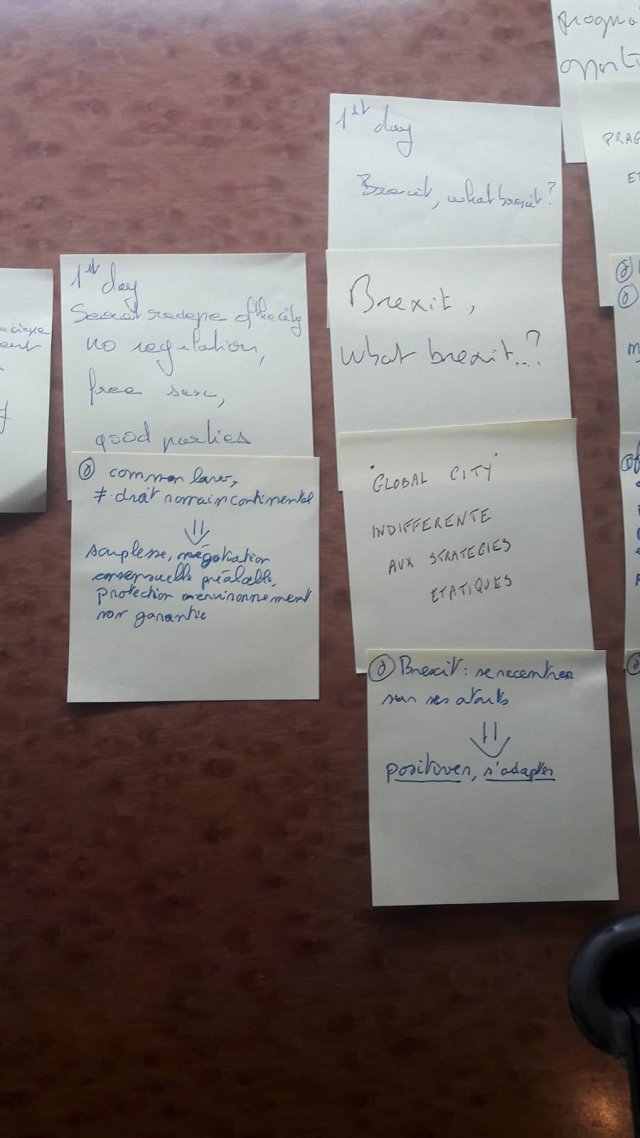 1st day
Secret recepe of the city
no regulation,
free sex,
good parties
common law,
≠ droit romain continental
⇓
souplesse, négotiation
consensuelle préalable,
protection environnement
non garantie
1st day
Brexit, what brexit?
Brexit,
what brexit..?
"GLOBAL CITY"
INDIFFERENTE
AUX STRATEGIES
ETATIQUES
Brexit : se recentrer
sur ses atouts
⇓
positiver, s'adapter